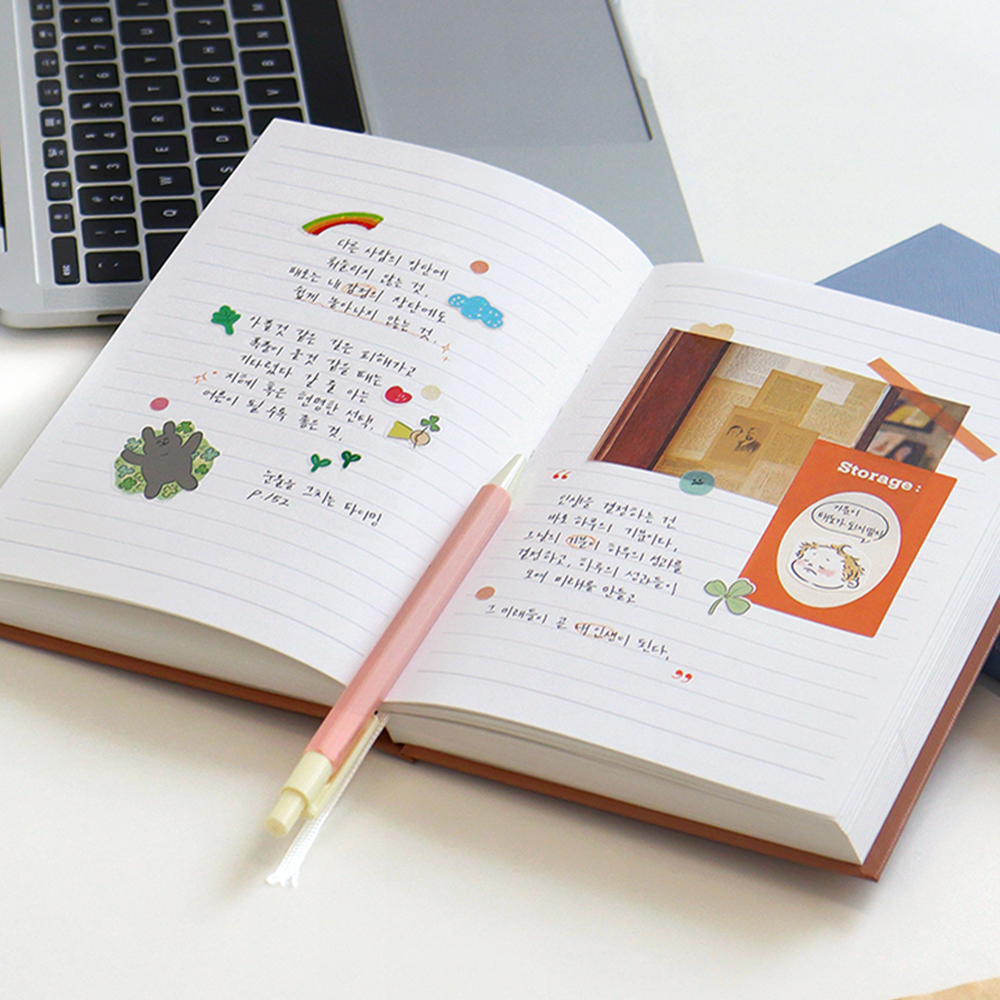 다른 사람의 장단에
휘둘리지 않는 것.
때로는 내 감정의 장단에도
쉽게 놀아나지 않는 것.
아플것 같은 길은 피해가고
폭풍이 올것 같을 때는
기다렸다 갈 줄 아는
지혜 혹은 현명한 선택.
어른이 될수록 좋은 것.
눈물을 그치는 타이밍
P.152
“
인생을 결정하는 건
바로 하루의 기분이다.
그날의 기분이 하루의 성과를
결정하고, 하루의 성과들이
모여 미래를 만들고
그 미래들이 곧 내 인생이 된다.
”
Storage:
기분이
태도가 되지말자